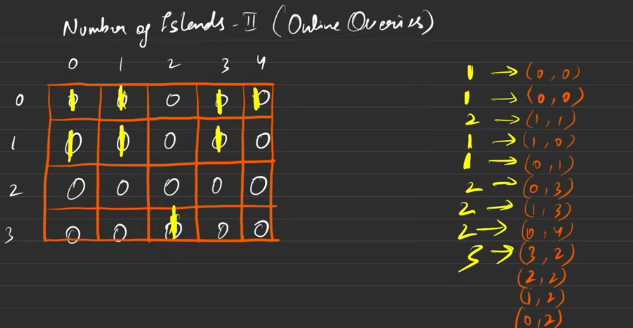 Number of Islands - II (Online Queries)
0 1 2 3 4
0 0 0 0 0 0
1 0 0 0 0 0
2 0 0 0 0 0
3 0 0 0 0 0
1 → (0, 0)
1 → (0, 0)
2 → (1, 1)
1 → (1, 0)
1 → (0, 1)
2 → (0, 3)
2 → (1, 3)
2 → (0, 4)
3 → (3, 2)
(2, 2)
(1, 2)
(0, 2)